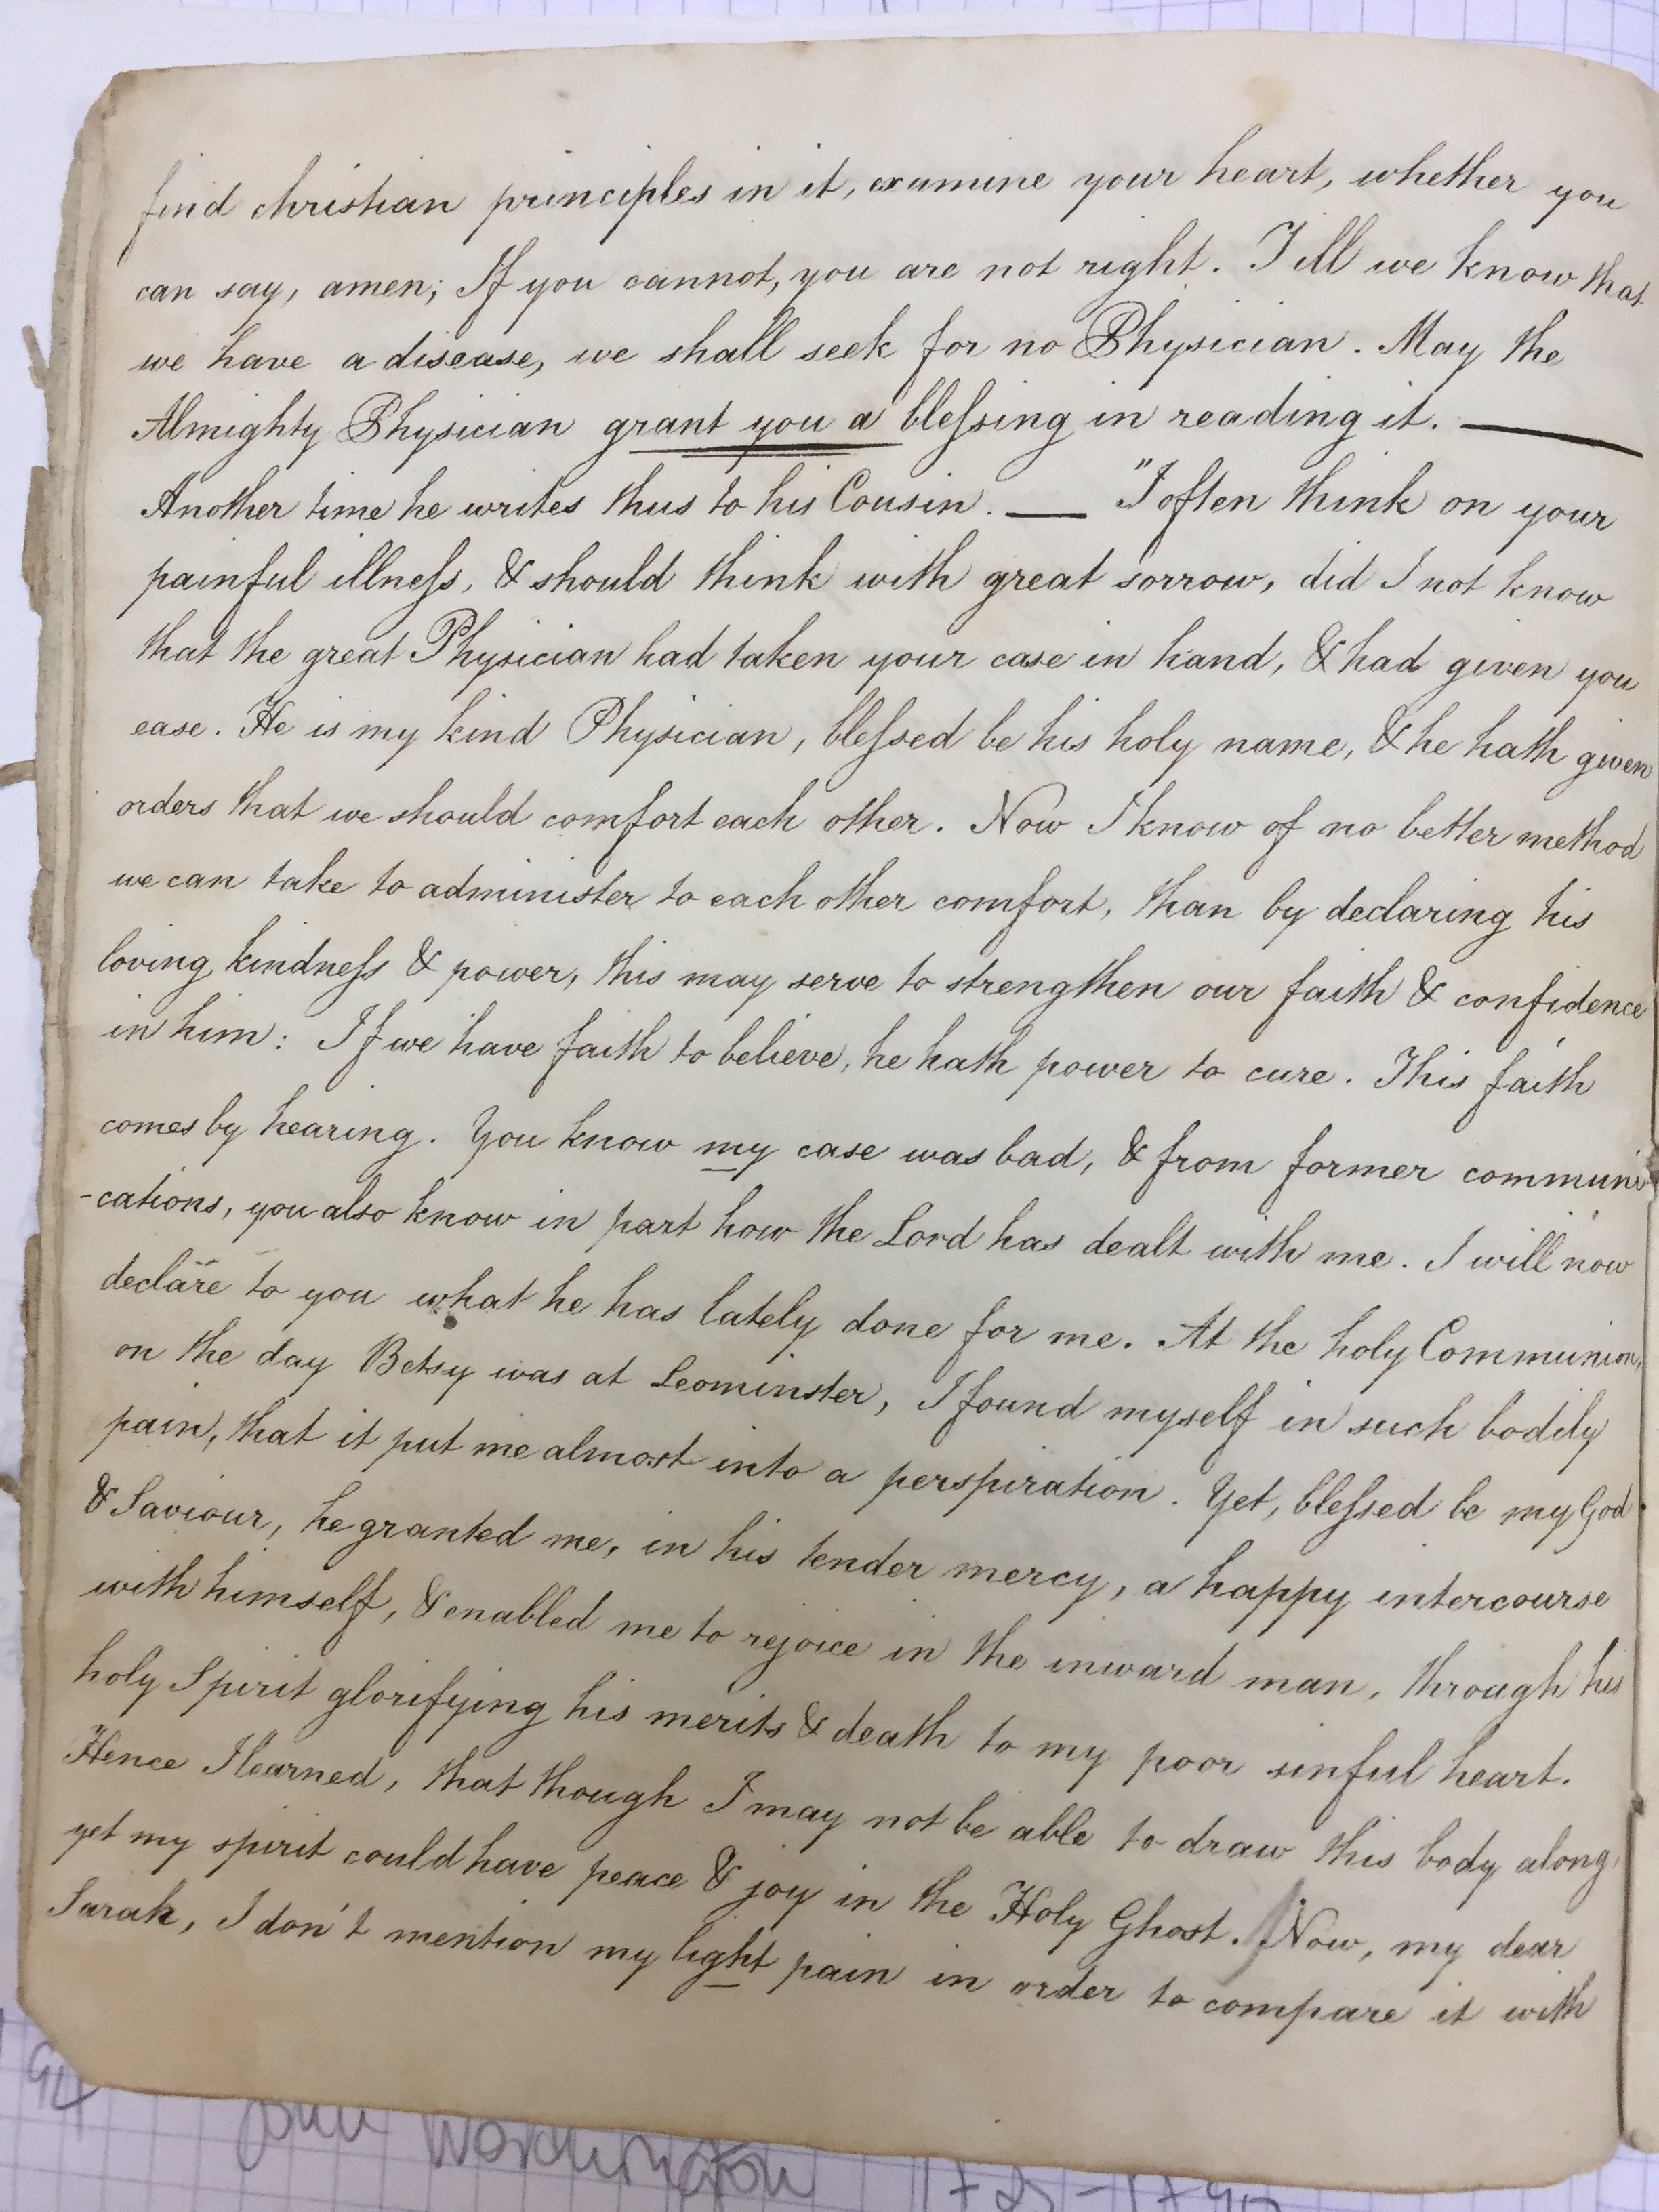 find christian principles in it, examine your heart, whether you
can say, amen; If you cannot, you are not right. Till we know that
we have a disease, we shall seek for no Physician. May the
Almighty Physician grant you a bleſsing in reading it. ——
Another time he writes thus to his Cousin. — "I often think on your
painful illneſs, & should think with great sorrow, did I not know
that the great Physician had taken your case in hand, & had given you
ease. He is my kind Physician, bleſsed be his holy name, & he hath given
orders that we should comfort each other. Now I know of no better method
we can take to administer to each other comfort, than by declaring his
loving kindneſs & power, this may serve to strengthen our faith & confidence
in him: If we have faith to believe, he hath power to cure. This faith
comes by hearing. You know my case was bad, & from former communi-
-cations, you also know in part how the Lord has dealt with me. I will now
declare to you what he has lately done for me. At the holy Communion,
on the day Betsy was at Leominster, I found myself in such bodily
pain, that it put me almost into a perspiration. Yet, bleſsed be my God
& Saviour, he granted me, in his tender mercy, a happy intercourse
with himself, & enabled me to rejoice in the inward man, through his
holy Spirit glorifying his merits & death to my poor sinful heart.
Hence I learned, that though I may not be able to draw this body along,
yet my spirit could have peace & joy in the Holy Ghost. Now, my dear
Sarah, I don't mention my light pain in order to compare it with
94
John Worthington 1725-1790